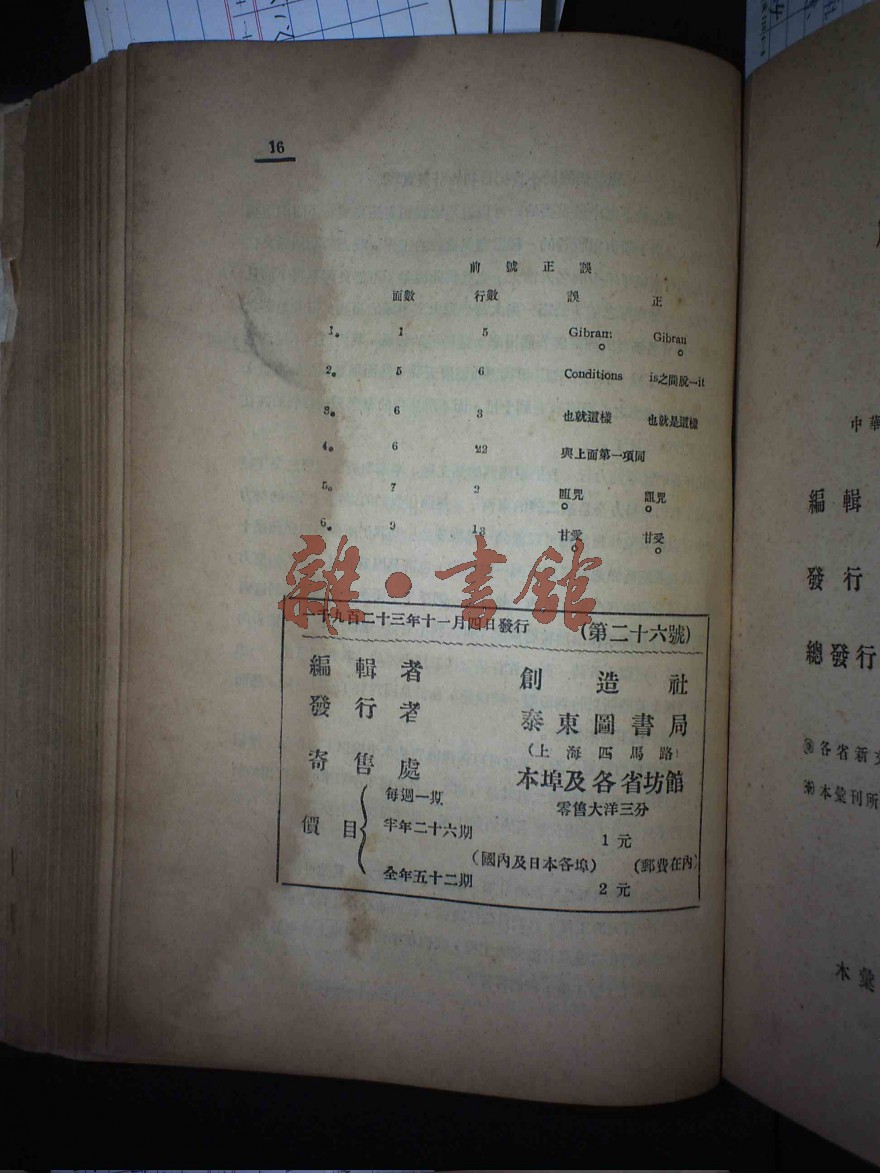 16
前號正誤
面數 行數 誤 正
1。 1 5 Gibram Gibran
2。 5 6 Conditions is之間脫一it
3。 6 3 也就這樣 也就是這樣
4。 6 22 與上面第一項同
5。 7 2 咀咒 詛咒
6。 9 13 甘愛 甘受
雜·書館
一千九百二十三年十一月四日發行 (第二十六號)
編輯者 創造社
發行者 泰東圖書局
(上海四馬路)
寄售處 本埠及各省坊館
價目
每週一期 零售大洋三分
半年二十六期 1元
(國內及日本各埠) (郵費在內)
全年五十二期 2元
中華
編輯
發行
總發行
各省新文
本彙刊所
本彙